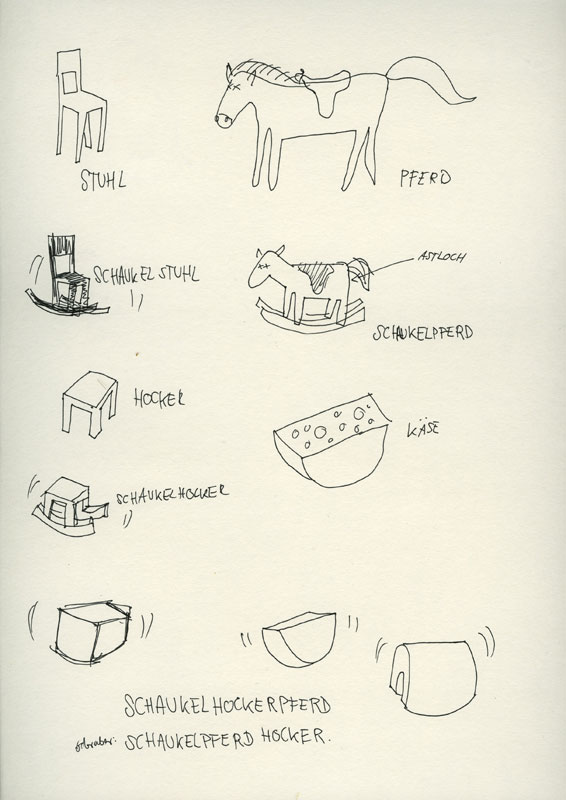 STUHL
PFERD
SCHAUKEL STUHL
ASTLOCH
SCHAUKELPFERD
HOCKER
KÄSE
SCHAUKELHOCKER
SCHAUKELHOCKERPFERD
SCHAUKELPFERD HOCKER.